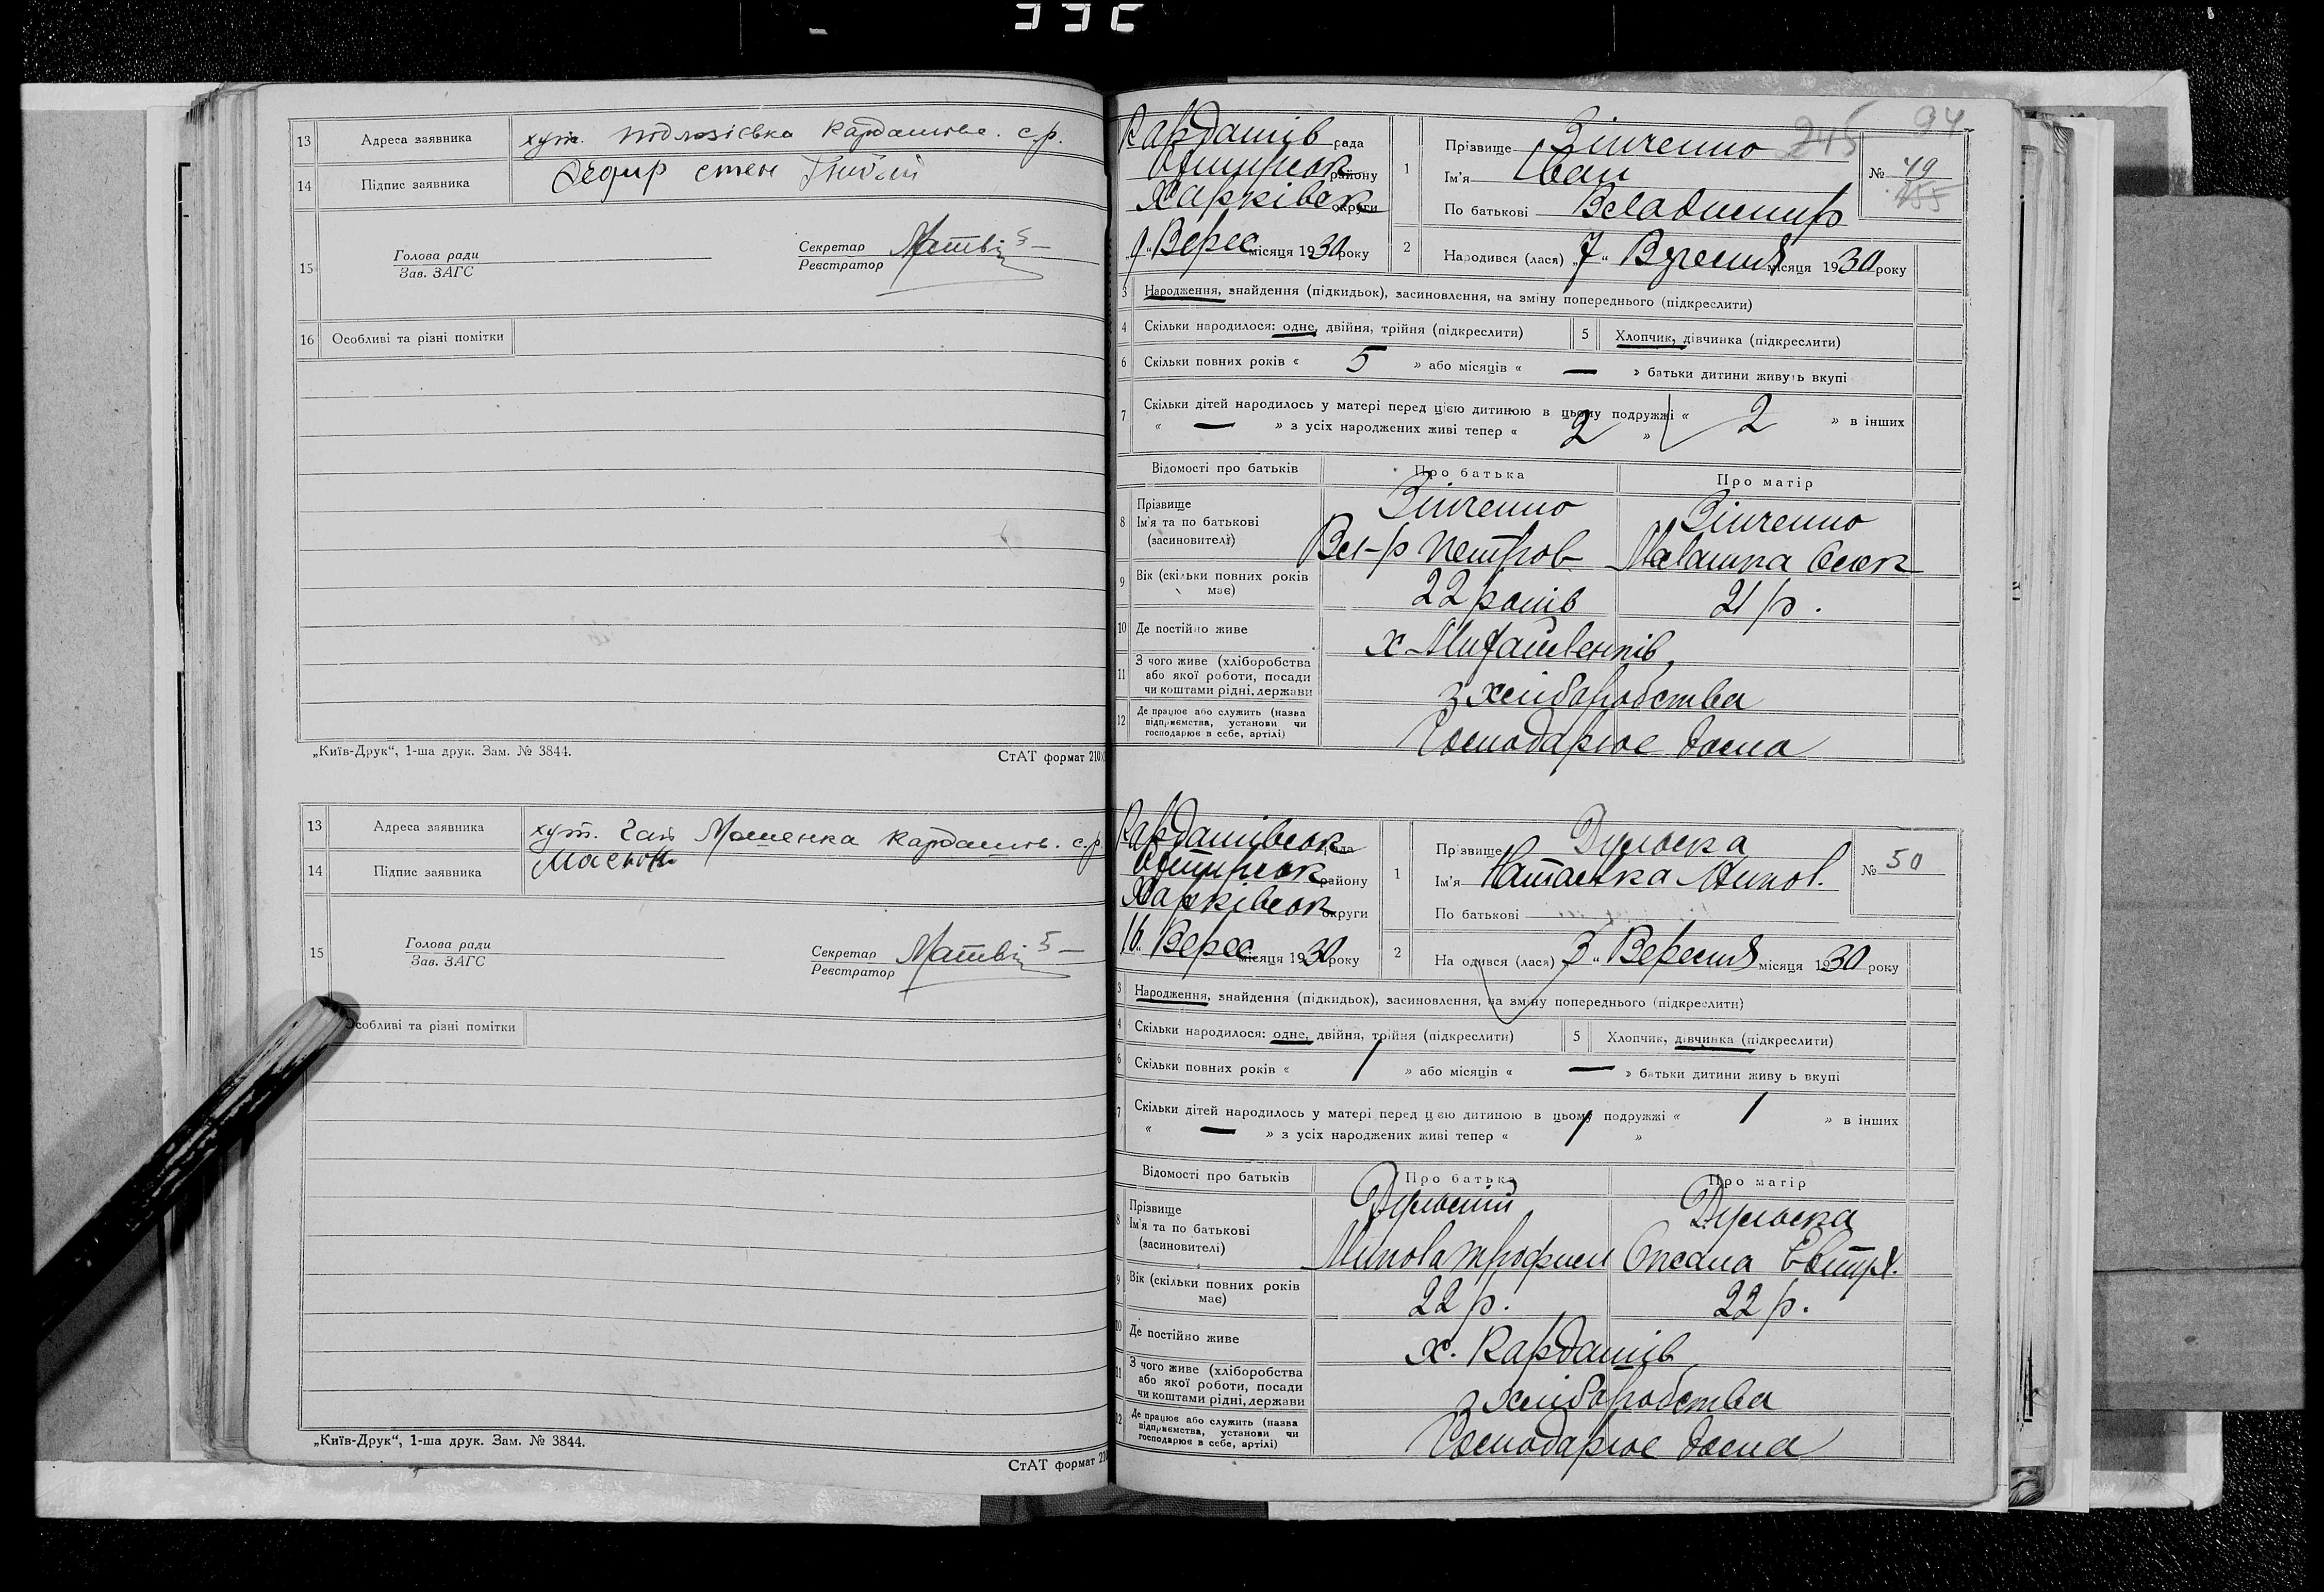 13 Адреса заявника хут. Подлозіевка Кардашове. с.р.
14 Підпис заявника
15 Голова ради
Зав. ЗАГС
Секретар
Реєстратор
16 Особливі та різні помітки
„Київ-Друк“, 1-ша друк. Зам. № 3844.
СтАТ формат 210
13 Адреса заявника хут. Кардашів. с.р.
14 Підпис заявника
15 Голова ради
Зав. ЗАГС
Секретар
Реєстратор
Особливі та різні помітки
„Київ-Друк“, 1-ша друк. Зам. № 3844.
СтАТ формат 210
245 94
Кардашів рада
Охтирськ району
Харківськ округи
9 „Верес місяця 1930 року
1 Прізвище Зінченко
Ім'я Іван
По батькові Владимир
№ 49
155
2 Народився (лася) „7“ Вересня місяця 1930 року
3 Народження, знайдення (підкидьок), засиновлення, на зміну попереднього (підкреслити)
4 Скільки народилося: одне, двійня, трійня (підкреслити) 5 Хлопчик, дівчинка (підкреслити)
6 Скільки повних років « 5 » або місяців « — » батьки дитини живуть вкупі
7 Скільки дітей народилось у матері перед цією дитиною в цьому подружжі « 2 » в інших
« — » з усіх народжених живі тепер « 2 »
Відомості про батьків Про батька Про матір
8 Прізвище
Ім'я та по батькові
(засновителі)
Зінченко
Вл-р Петров
Зінченко
Малашка Олек
9 Вік (скільки повних років має) 22 років 21 р.
10 Де постійно живе х
11 З чого живе (хліборобства
або якої роботи, посади
чи коштами рідні, держави
з хліборобства
12 Де працює або служить (назва
підприємства, установи чи
господарює в себе, артілі)
Господарює дома
Кардашівськ рада
Охтирськ району
Харківськ округи
16 „Верес місяця 1930 року
1 Прізвище Дульска
Ім'я Наталка Микол.
По батькові
№ 50
2 Народився (лася) „3“ Вересня місяця 1930 року
3 Народження, знайдення (підкидьок), засиновлення, на зміну попереднього (підкреслити)
4 Скільки народилося: одне, двійня, трійня (підкреслити) 5 Хлопчик, дівчинка (підкреслити)
6 Скільки повних років « 1 » або місяців « — » батьки дитини живуть вкупі
7 Скільки дітей народилось у матері перед цією дитиною в цьому подружжі « 1 » в інших
« — » з усіх народжених живі тепер « 1 »
Відомості про батьків Про батька Про матір
8 Прізвище
Ім'я та по батькові
(засиновителі)
Дульский
Микола Трофим
Дульска
Оксана
9 Вік (скільки повних років має) 22 р. 22 р.
10 Де постійно живе х. Кардашів
11 З чого живе (хліборобства
або якої роботи, посади
чи коштами рідні, держави
з хліборобства
12 Де працює або служить (назва
підприємства, установи чи
господарює в себе, артілі)
Господарює дома